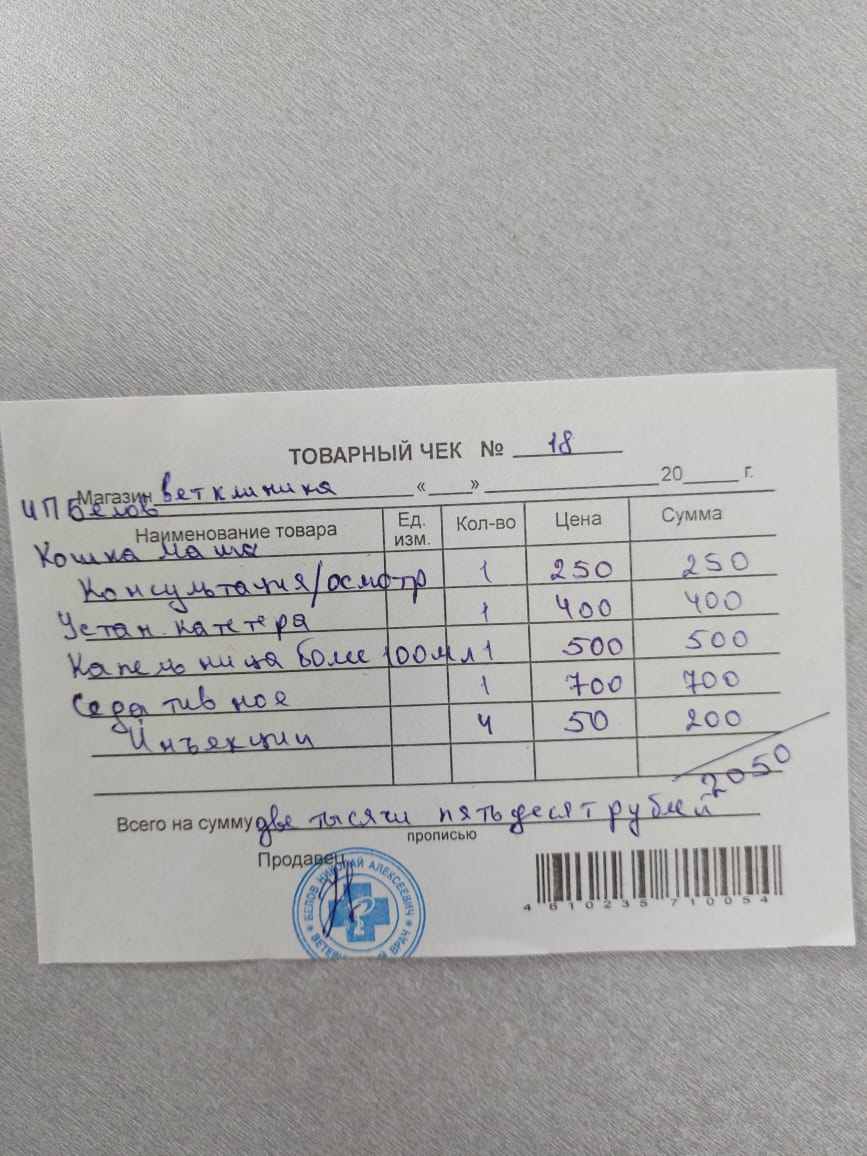 ТОВАРНЫЙ ЧЕК № 18
Магазин ветклиника « » 20 г.
ИП Белов
Наименование товара Ед. изм. Кол-во Цена Сумма
Кошка Маша
Консультация/осмотр 1 250 250
Устан. катетера 1 400 400
Капельница более 100 мл 1 500 500
Седативное 1 700 700
Инъекции 4 50 200
2050
Всего на сумму две тысячи пятьдесят рублей
прописью
Продавец
БЕЛОВ НИКОЛАЙ АЛЕКСЕЕВИЧ
ВРАЧ
4 610235 710054